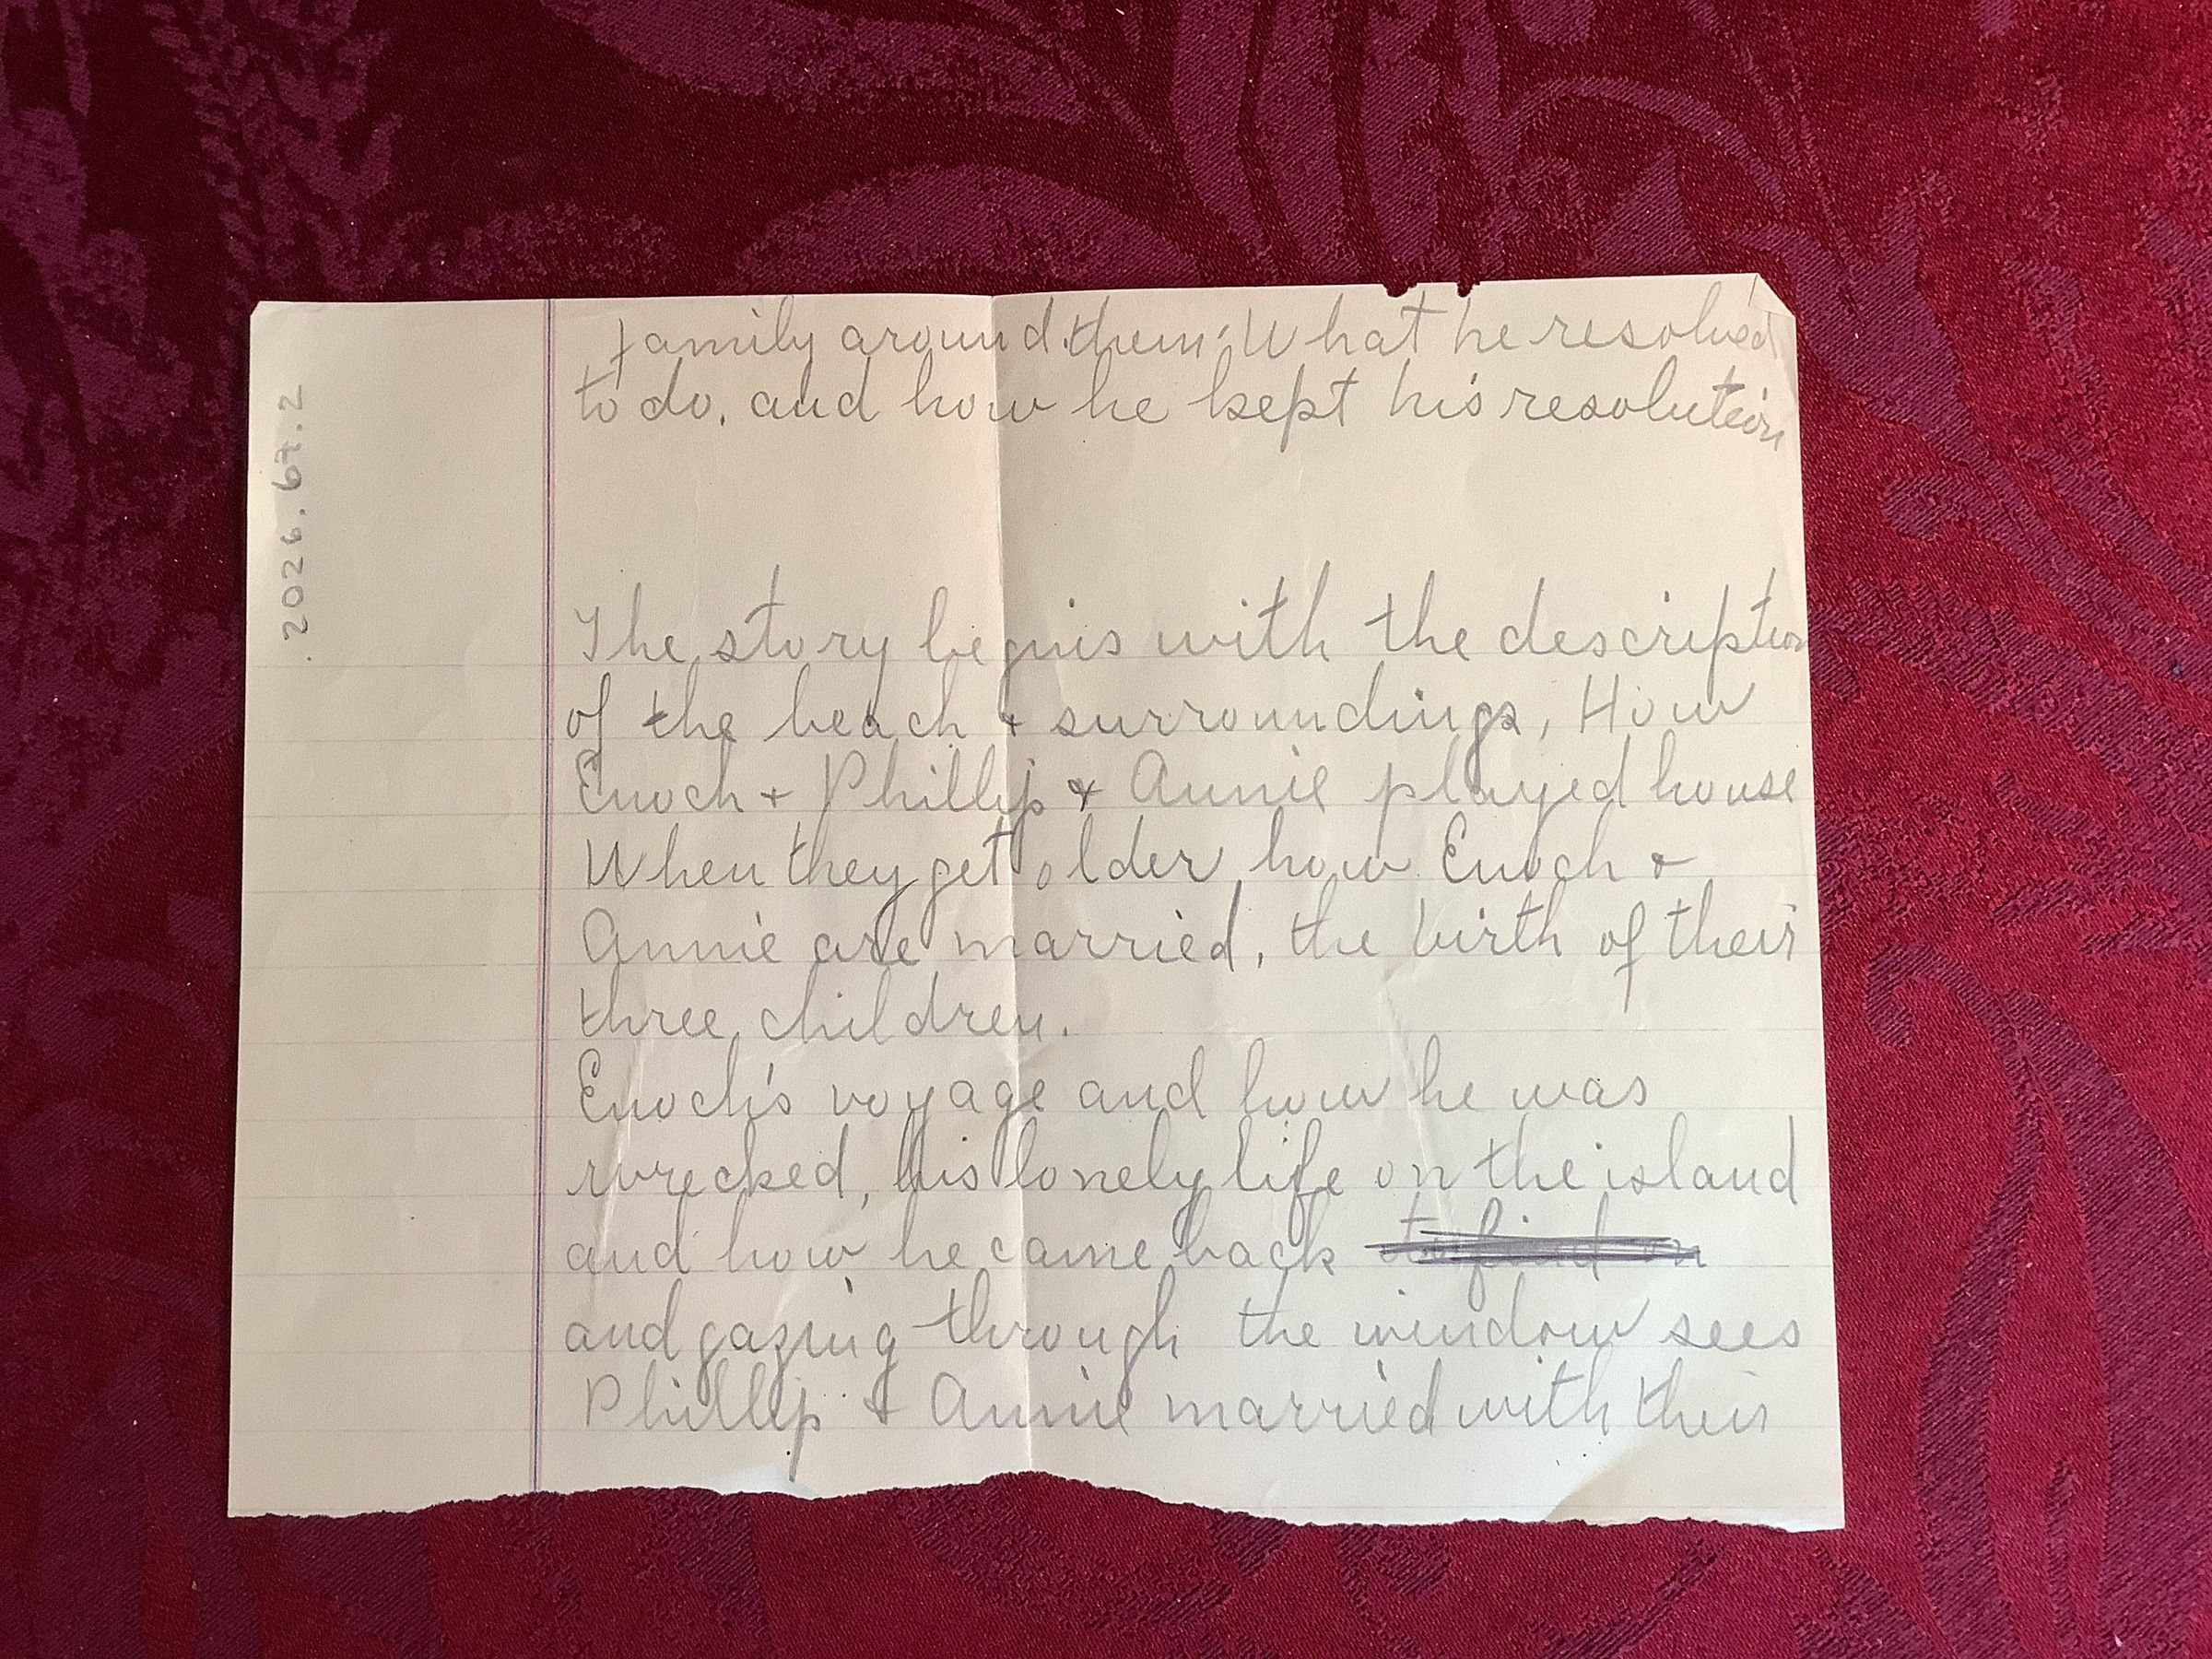 family around them. What he resolved
to do, and how he kept his resolution
2026.67.2
The story begins with the description
of the beach & surroundings, How
Enoch & Phillip & Annie played house
When they get older how Enoch &
Annie are married, the birth of their
three children.
Enoch's voyage and how he was
wrecked, his lonely life on the island
and how he came back to find on
and gazing through the window sees
Phillip & Annie married with their